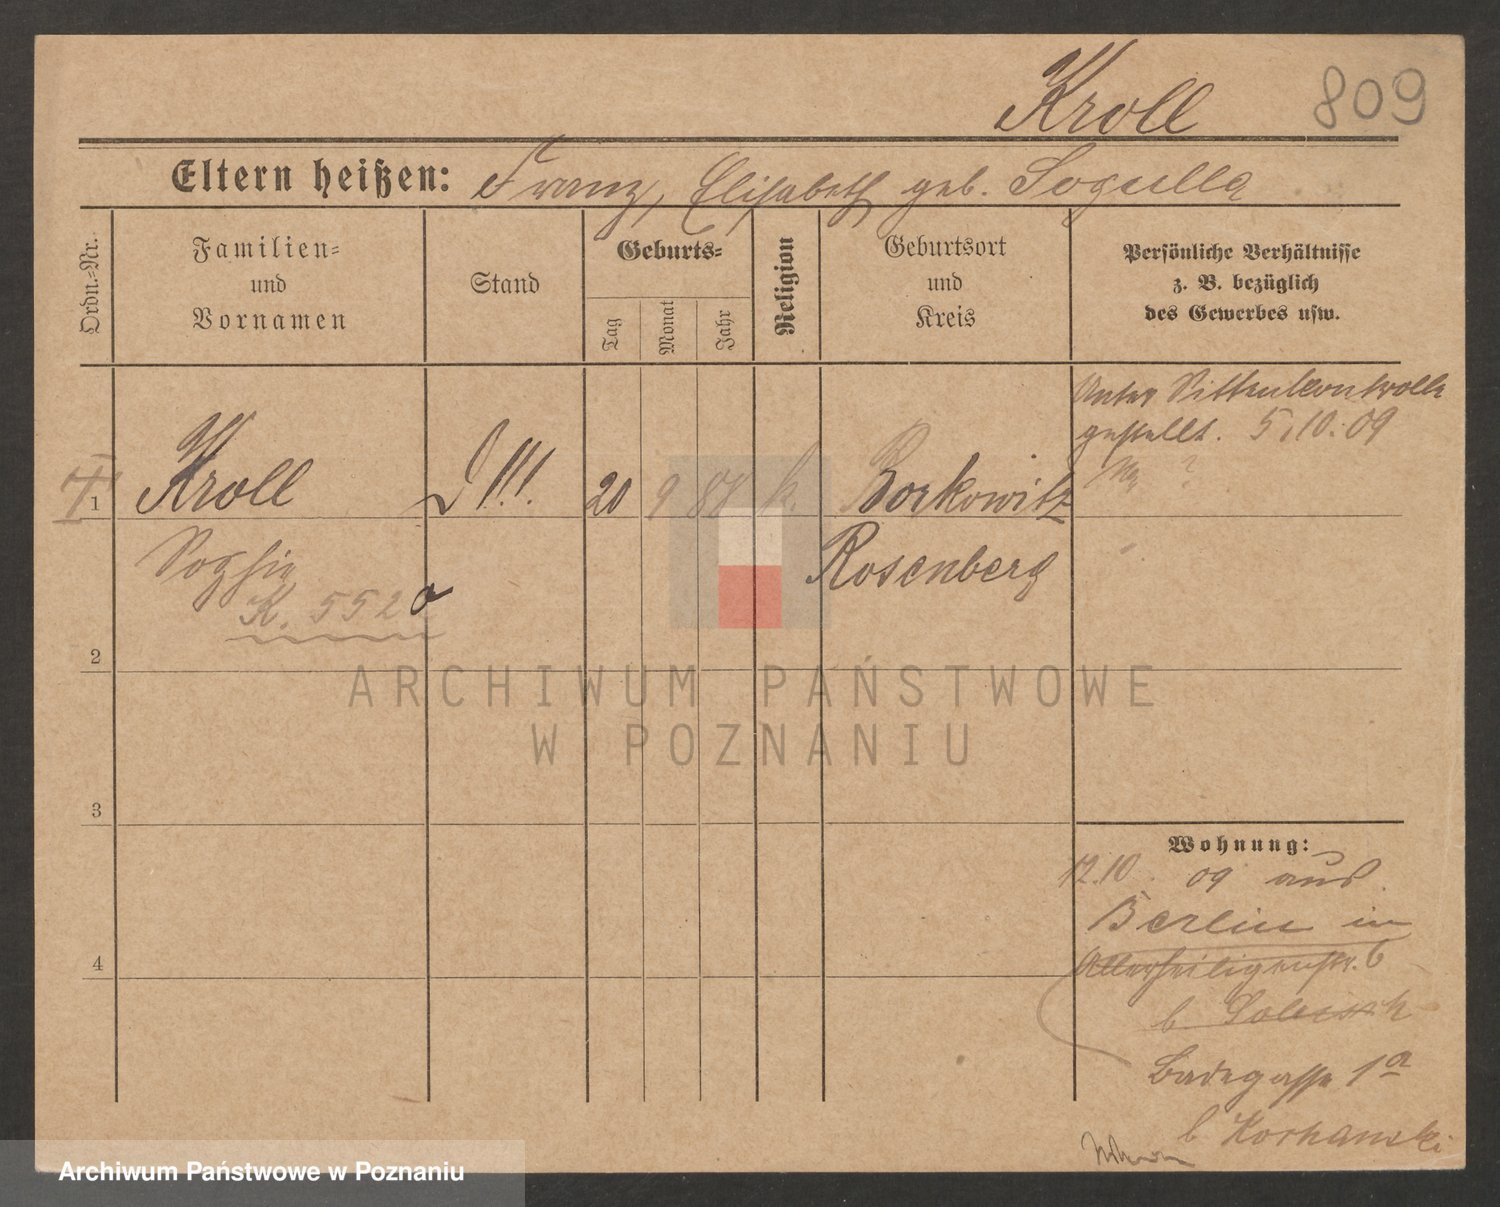 Kroll 809
Eltern heißen: Franz, Elisabeth geb. Sogulla
Ordn.-Nr.
Familien-
und
Vornamen
Stand
Geburts-
Tag
Monat
Jahr
Religion
Geburtsort
und
Kreis
Persönliche Verhältnisse
z. B. bezüglich
des Gewerbes usw.
Unter Sittenkontrolle
gestellt. 5.10.09
1 Kroll D!!! 20 9 87 k. Borkowitz
Sophie Rosenberg
K. 552 a
2
3
4
Wohnung:
12.10 09 aus
Berlin in
Allerheiligenstr. 6
b.
Badegasse 1a
b
ARCHIWUM PAŃSTWOWE
W POZNANIU
Archiwum Państwowe w Poznaniu